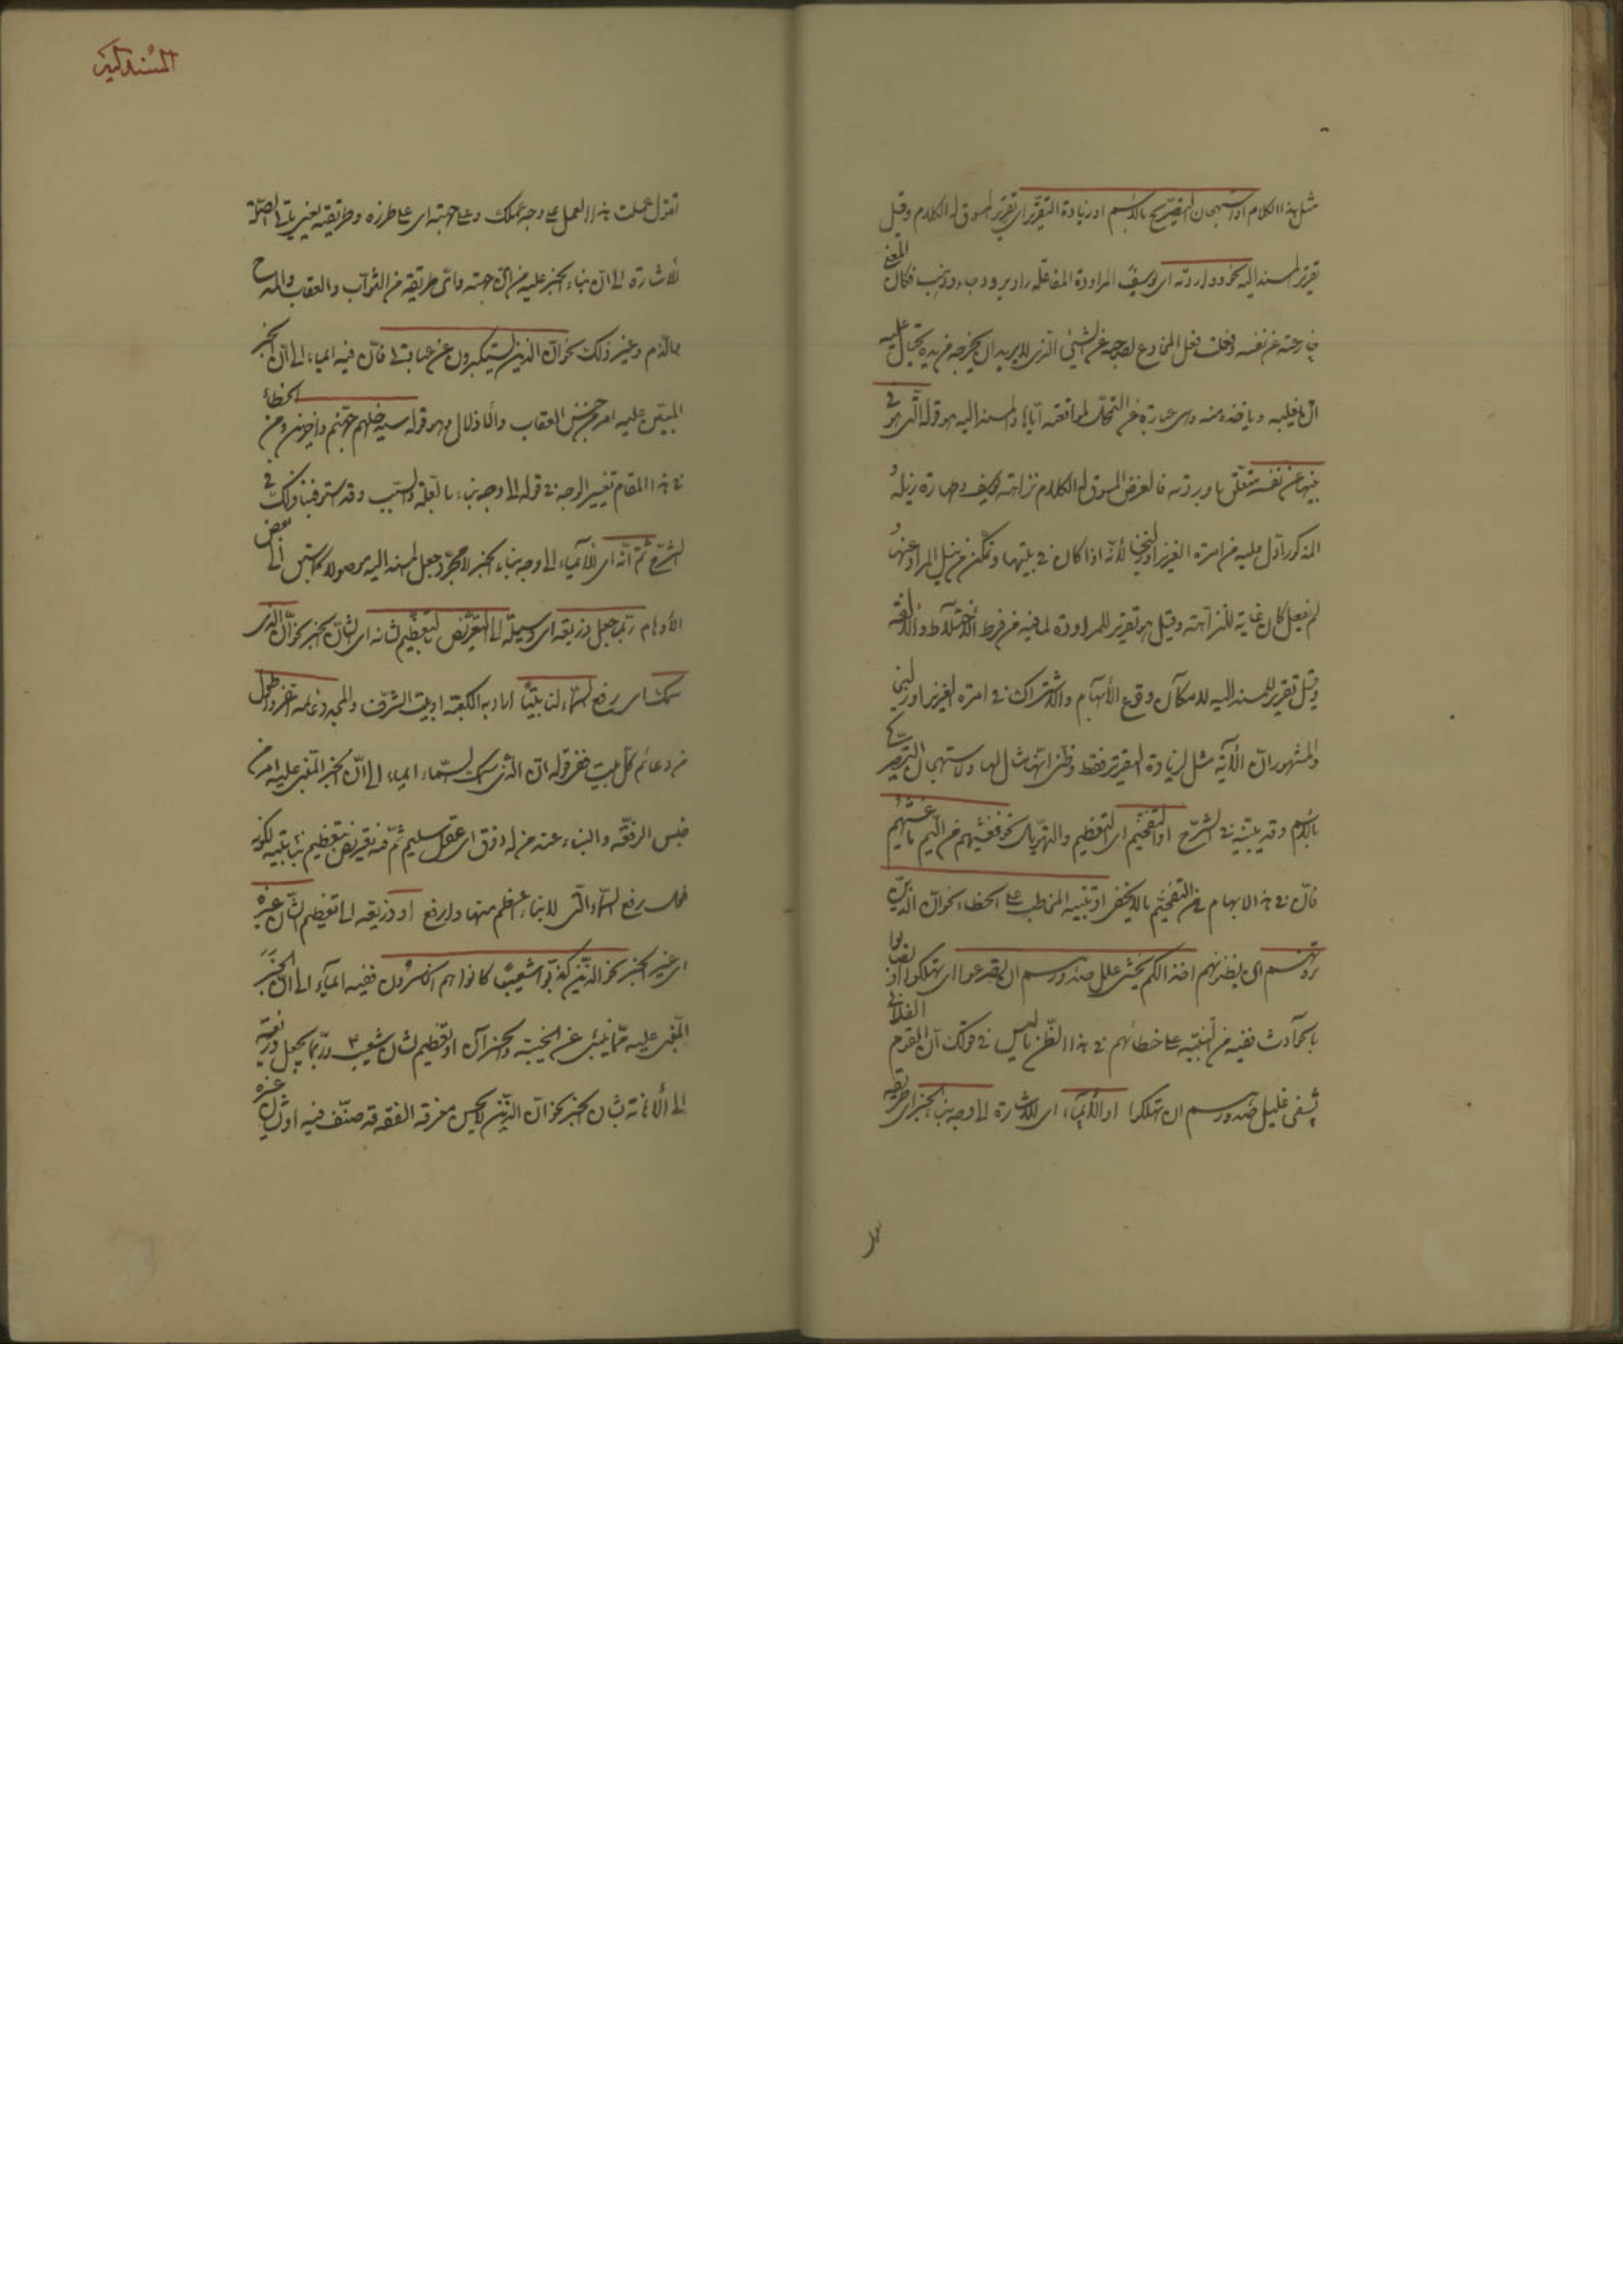 مثل هذا الكلام او استهجان التصريح بالاسم او زيادة التقرير اى تقرير المسوق له الكلام وقيل
تقرير المسند اليه نحو وراودته اى يوسف المراودة المفاعلة من راد يرود جاء وذهب فكان المعنى
خادعته عن نفسه وفعلت فعل المخادع لصاحبه عن الشيء الذى لا يريد ان يخرجه من يده يحتال عليه
ان يغلبه وياخذه منه وهى عبارة عن التمحل لمواقعته اياها والمسند اليه هو قوله التى هو فى
بيتها عن نفسه متعلق براودته فالغرض المسوق له الكلام نزاهة يوسف وطهارة ذيله و
المذكور ادل عليه من امرءة العزيز او زليخا لانه اذا كان فى بيتها وتمكن من نيل المراد عنها و
لم يفعل كان غاية النزاهة وقيل هو تقرير للمراودة لما فيه من فرط الاختلاط والالفة
وقيل تقرير للمسند اليه لامكان وقوع الابهام والاشتراك فى امرءة العزيز او زليخا
والمشهور ان الآية مثال لزيادة التقرير فقط وظنى انها مثال لها ولاستهجان التصريح
بالاسم وقد بينته فى الشرح او التفخيم اى التعظيم والتهويل نحو فغشيهم من اليم ما غشيهم
فان فى هذا الابهام من التفخيم ما لا يخفى او تنبيه المخاطب على الخطاء نحو ان الذين
ترونهم اى تظنونهم اخوانكم يشفى غليل صدورهم ان تصرعوا اى تهلكوا او تصابوا
بالحوادث ففيه من التنبيه على خطائهم فى هذا الظن ما ليس فى قولك ان القوم الفلانى
يشفى غليل صدورهم ان تهلكوا او الايماء اى للاشارة الى وجه بناء الخبر اى طريقه
تقول
تقول عملت هذا العمل على وجه عملك وعلى جهته اى على طرزه وطريقته يعنى ياتى بالصلة
للاشارة الى ان بناء الخبر عليه من اى جهته واى طريقة من الثواب والعقاب والمدح
والذم وغير ذلك نحو ان الذين يستكبرون عن عبادتى فان فيه ايماء الى ان الخبر
المبنى عليه امر من جنس العقاب والاذلال وهو قوله سيدخلون جهنم داخرين ومن الخطاء
فى هذا المقام تفسير الوجه فى قوله الى وجه بناء بالعلة والسبب وقد استوفينا ذلك فى
الشرح ثم انه اى الايماء الى وجه بناء الخبر لا مجرد جعل المسند اليه موصولا كما سبق الى بعض
الاوهام ربما جعل ذريعة اى وسيلة الى التعريض بالتعظيم لشانه اى لشان الخبر نحو ان الذى
سمك اى رفع السماء بنى لنا بيتا اراد به الكعبة او بيت الشرف والمجد دعائمه اعز واطول
من دعائم كل بيت ففى قوله ان الذى سمك السماء ايماء الى ان الخبر المبنى عليه امر من
جنس الرفعة والبناء عند من له ذوق اى عقل سليم ثم فيه تعريض بتعظيم بناء بيته لكونه
فعل من رفع السماء التى لا بناء اعظم منها وارفع او ذريعة الى تعظيم الشان غيره
اى غير الخبر نحو الذين كذبوا شعيبا كانوا هم الخاسرون ففيه ايماء الى ان الخبر
المبنى عليه مما ينبئ عن الخيبة والخسران او تعظيم لشان شعيب ع وربما يجعل ذريعة
الى الاهانة بشان الخبر نحو ان الذين لا يحسن معرفة الفقه قد صنف فيه او شان غيره